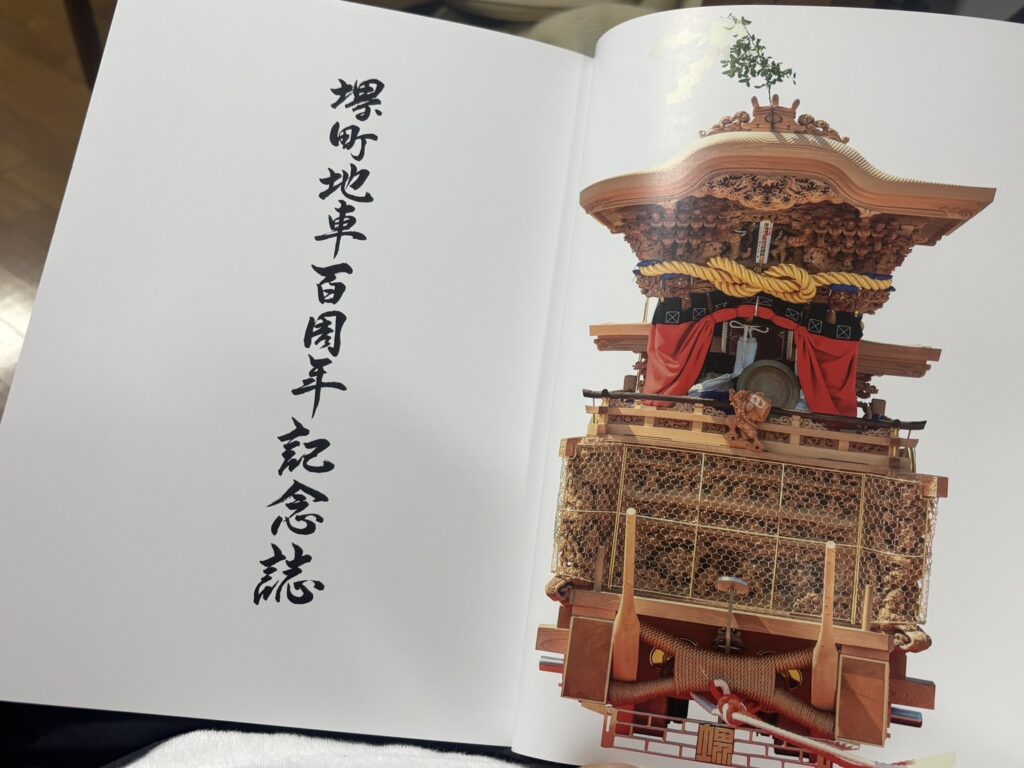 堺町地車百周年記念誌